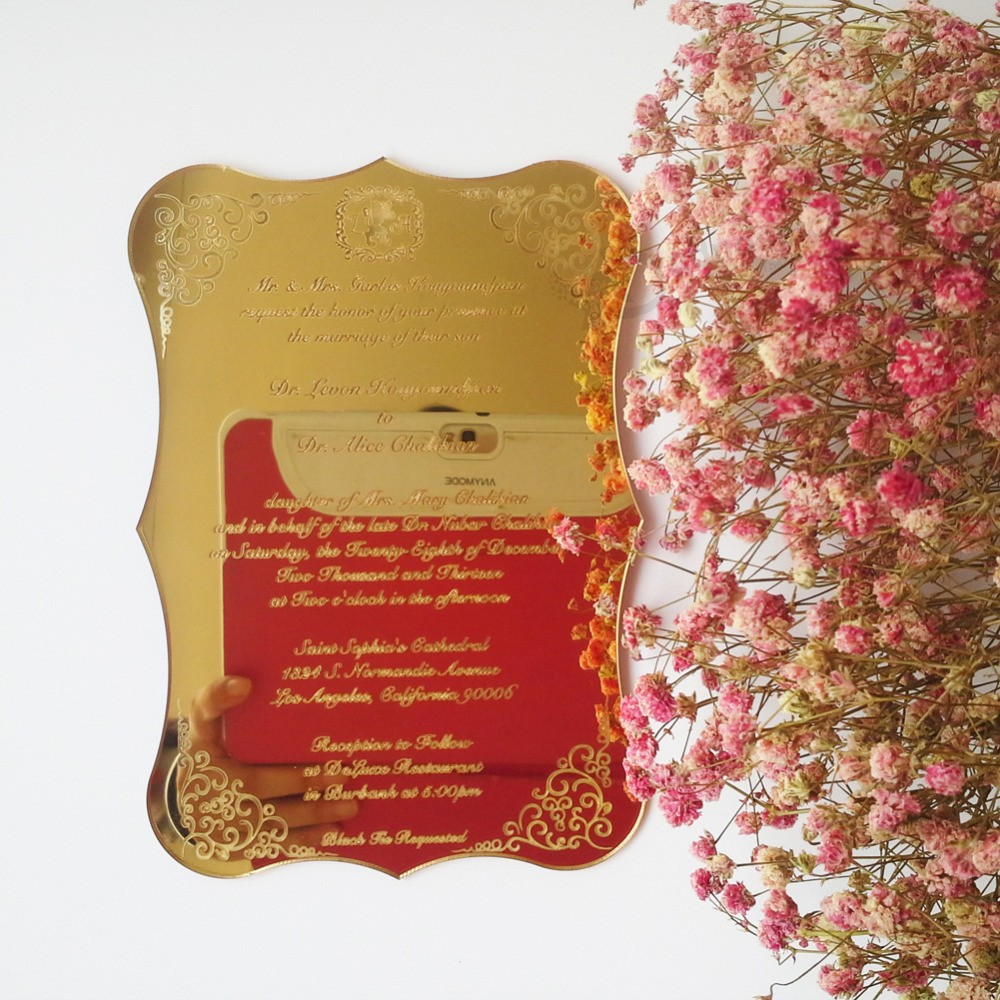 Mr. & Mrs. Garbis
request the honor of your presence at
the marriage of their son
Dr. Levon
to
Dr. Alice
daughter of Mrs. Mary Chalikian
and in behalf of the late Dr. Nubar
on Saturday, the Twenty-Eighth of December
Two Thousand and Thirteen
at Two o'clock in the afternoon
Saint Sophia's Cathedral
1324 S. Normandie Avenue
Los Angeles, California 90006
Reception to Follow
at DeLuxe Restaurant
in Burbank at 6:00pm
Black Tie Requested
ANYMODE